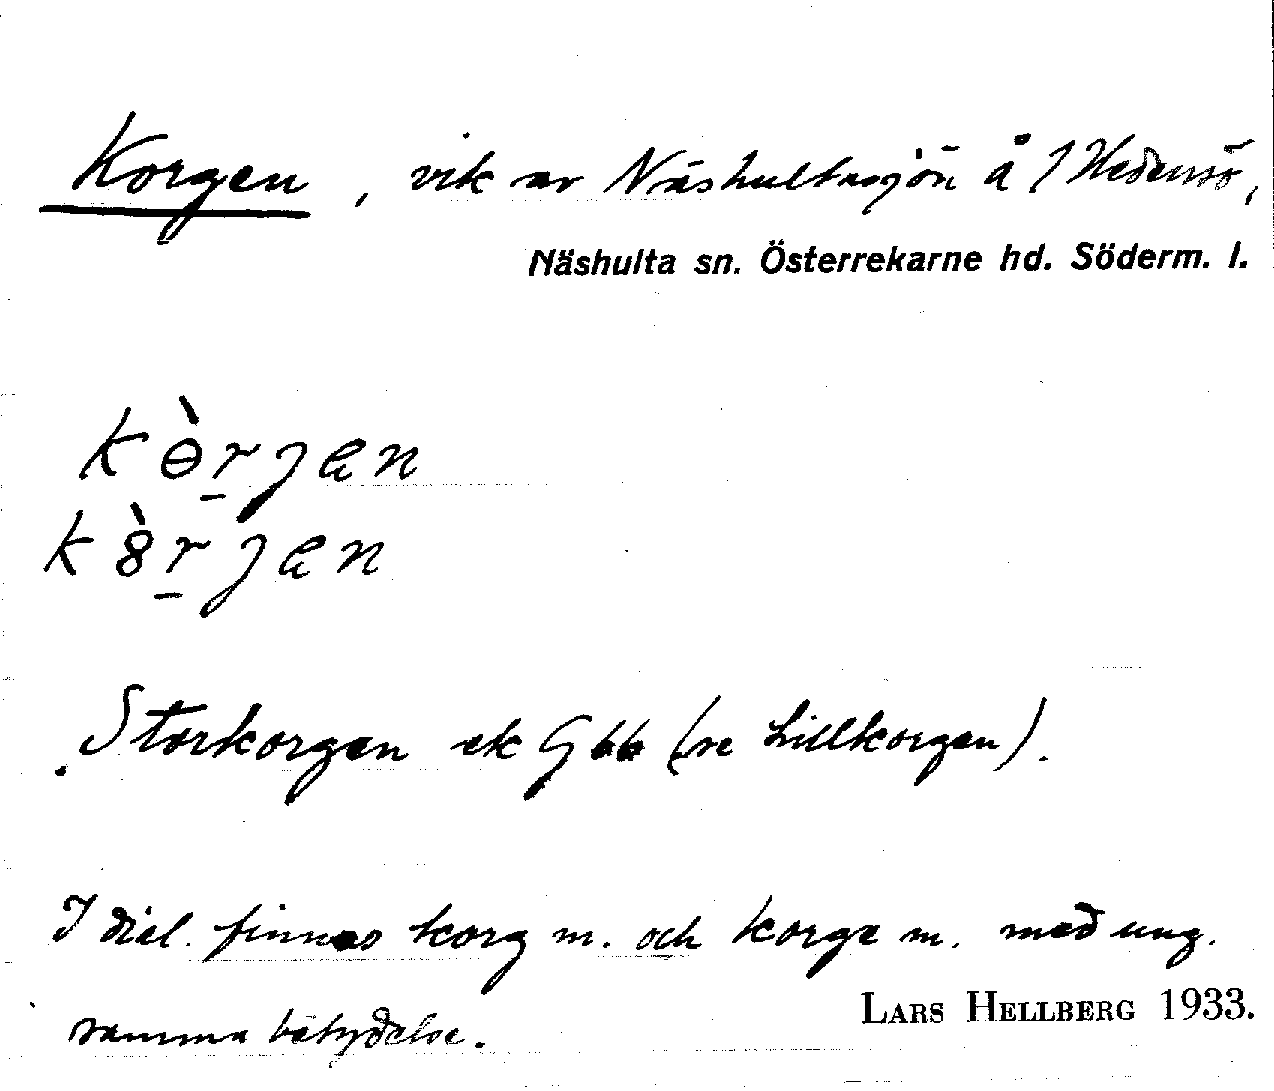 Korgen, vik av Näshultasjön å 1 Hedensö,
Näshulta sn. Österrekarne hd. Söderm. l.
kɵ̀r̠jan
kȣ̀r̠jan
Storkorgen ek Gbb (se Lillkorgen).
I dial. finnes korg m. och korge m. med ung.
samma betydelse.
LARS HELLBERG 1933.